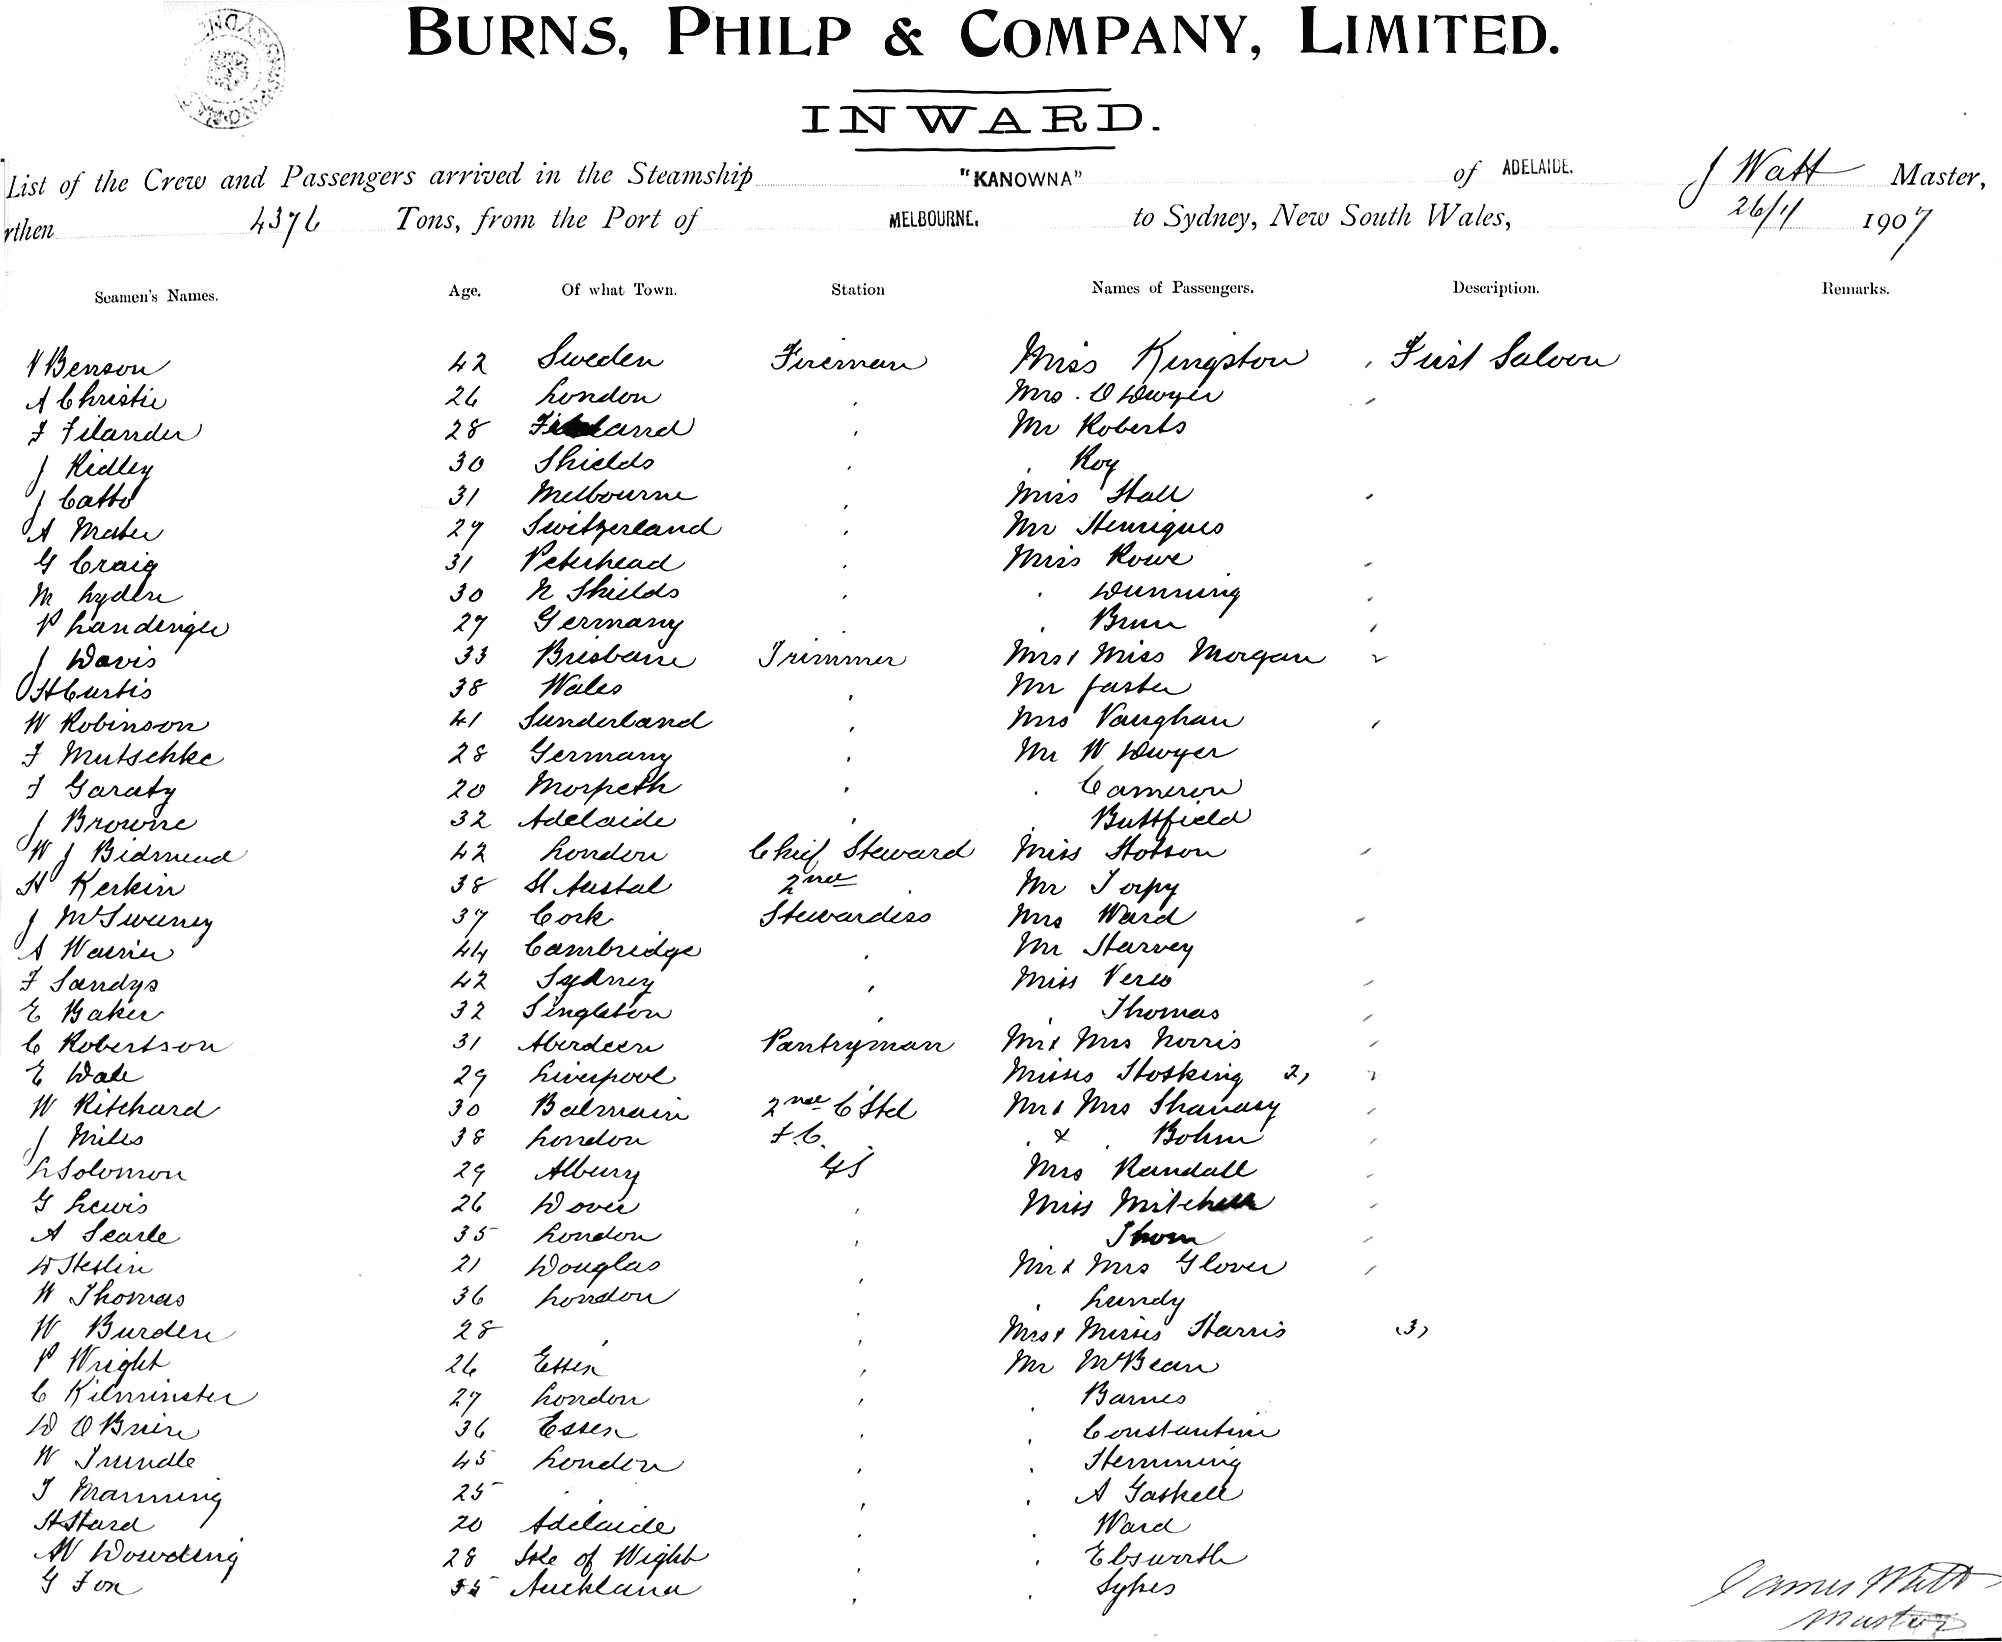 BURNS, PHILP & COMPANY, LIMITED.
INWARD.
List of the Crew and Passengers arrived in the Steamship "KANOWNA" of ADELAIDE. J Watt Master,
rthen 4376 Tons, from the Port of MELBOURNE. to Sydney, New South Wales, 26/11 1907
Seamen's Names. Age. Of what Town. Station Names of Passengers. Description. Remarks.
V Benson 42 Sweden Fireman Miss Kingston First Saloon
A Christie 26 London Mrs. O Dwyer
F Filander 28 Mr Roberts
J Ridley 30 Shields Roy
J Catto 31 Melbourne Miss Hall
A Mater 27 Switzerland Mr Henriques
G Craig 31 Peterhead Miss Rowe
M Lyden 30 N Shields Dunning
P 27 Germany Brun
J Davis 33 Brisbane Trimmer Mrs & Miss Morgan 2
H Curtis 38 Wales Mr
W Robinson 41 Sunderland Mrs Vaughan
F Mutschke 28 Germany Mr W Dwyer
F Garaty 20 Morpeth Cameron
J Browne 32 Adelaide Buttfield
W J Bidmead 42 London Chief Steward Miss Hobson
H Kerkin 38 St Austal 2nd Mr Torpy
J McSweeney 37 Cork Stewardess Mrs Ward
A Warrin 44 Cambridge Mr Harvey
F Sandys 42 Sydney Miss Verco
E Baker 32 Singleton Thomas
C Robertson 31 Aberdeen Pantryman Mr & Mrs Norris
E Dale 29 Liverpool Misses Hosking 2, 2
W Ritchard 30 Balmain 2nd C Std Mr & Mrs Shanasy
J Miles 38 London F.C. & Bohm
L Solomon 29 Albury GS Mrs Randall
G Lewis 26 Dover Miss Mitchell
A Searle 35 London Thom
D Heslin 21 Douglas Mr & Mrs Glover
W Thomas 36 London Lundy
W Burden 28 Mrs & Misses Harris (3)
P Wright 26 Essex Mr McBean
C Kilminster 27 London Barnes
D O Brien 36 Essex Constantine
W Trundle 45 London Hemming
T Manning 25 A Gaskell
H Hard 20 Adelaide Ward
AW Dowding 28 Isle of Wight Ebsworth
G Fox 35 Auckland Sykes
James Watt
Master